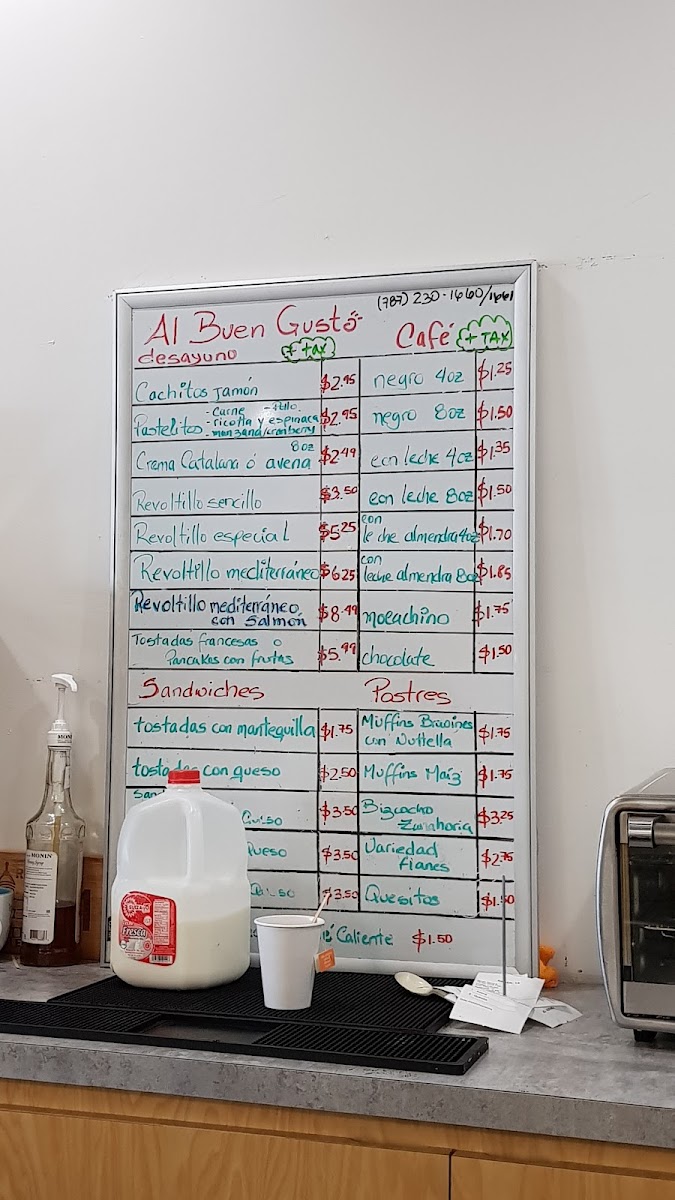 (787) 230-1660/1661
Al Buen Gusto
desayuno
+ tax
Café
+ TAX
Cachitos Jamón $2.95
negro 4oz $1.25
Pastelitos - Carne
- ricotta y espinaca
- manzana/cranberry
$2.95
negro 8oz $1.50
8oz
Crema Catalana ó avena $2.49
con leche 4oz $1.35
Revoltillo sencillo $3.50
con leche 8oz $1.50
Revoltillo especial $5.25
con
leche almendra 4oz $1.70
Revoltillo mediterráneo $6.25
con
leche almendra 8oz $1.85
Revoltillo mediterráneo
con Salmón $8.49
mocachino $1.75
Tostadas francesas o
Pancakes con frutas $5.99
chocolate $1.50
Sandwiches
Postres
tostadas con mantequilla $1.75
Muffins Brwoines
con Nuttella $1.75
tostadas con queso $2.50
Muffins Maíz $1.75
$3.50
Bizcocho
Zanahoria $3.25
Queso $3.50
Variedad
flanes $2.75
$3.50
Quesitos $1.50
Caliente $1.50
MONIN
Fresca